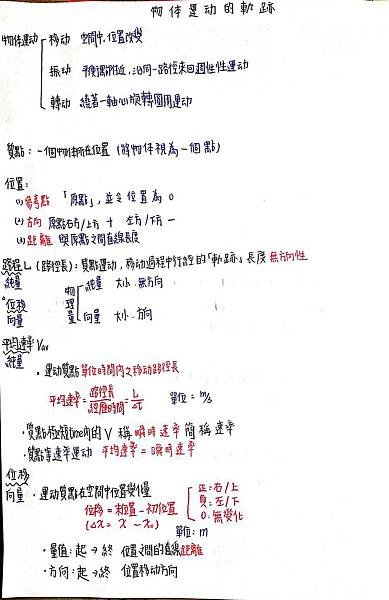 物体運動的軌跡
物体運動 移動 空間中,位置改變
振動 平衡点附近,沿同一路徑來回週性性運動
轉動 繞著一軸心旋轉圓周運動
質點:一個物体所在位置 (將物体視為一個點)
位置:
(1) 參考點 「原點」,並令位置為 0
(2) 方向 原點右方/上方 + 左方/下方 -
(3) 距離 與原點之間直線長度
路徑 L (路徑長):質點運動,移動過程中行經的「軌跡」長度 無方向性
純量 物理量 純量 大小.無方向
位移
向量 向量 大小.方向
平均速率 Vav
純量
・運動質點單位時間內之移動路徑長
平均速率 = 路徑長/經歷時間 = L/Δt 單位:m/s
・質點極短time內的 V 稱 瞬時速率 簡稱 速率
・質點等速率運動 平均速率 = 瞬時速率
位移
向量 ・運動質點在空間中位置變化量
位移 = 末位置 - 初位置
(Δx = x - x₀)
正:右/上
負:左/下
0:無變化
單位:m
・量值:起→終 位置之間的直線距離
・方向:起→終 位置移動方向